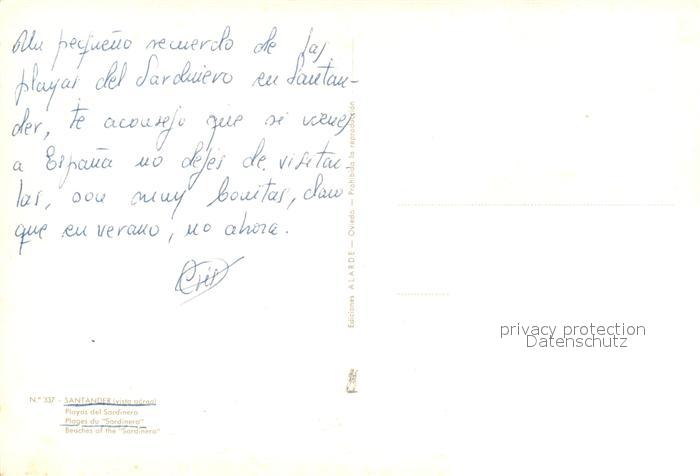 Un pequeño recuerdo de las
playas del Sardinero en Santan-
der, te aconsejo que si vienes
a España no dejes de visitar-
las, son muy bonitas, claro
que en verano, no ahora.
Cris
Ediciones ALARDE — Oviedo — Prohibida la reproducción
privacy protection
Datenschutz
N.° 337 - SANTANDER (vista aérea)
Playas del Sardinero
Plages du "Sardinero"
Beaches of the "Sardinero"